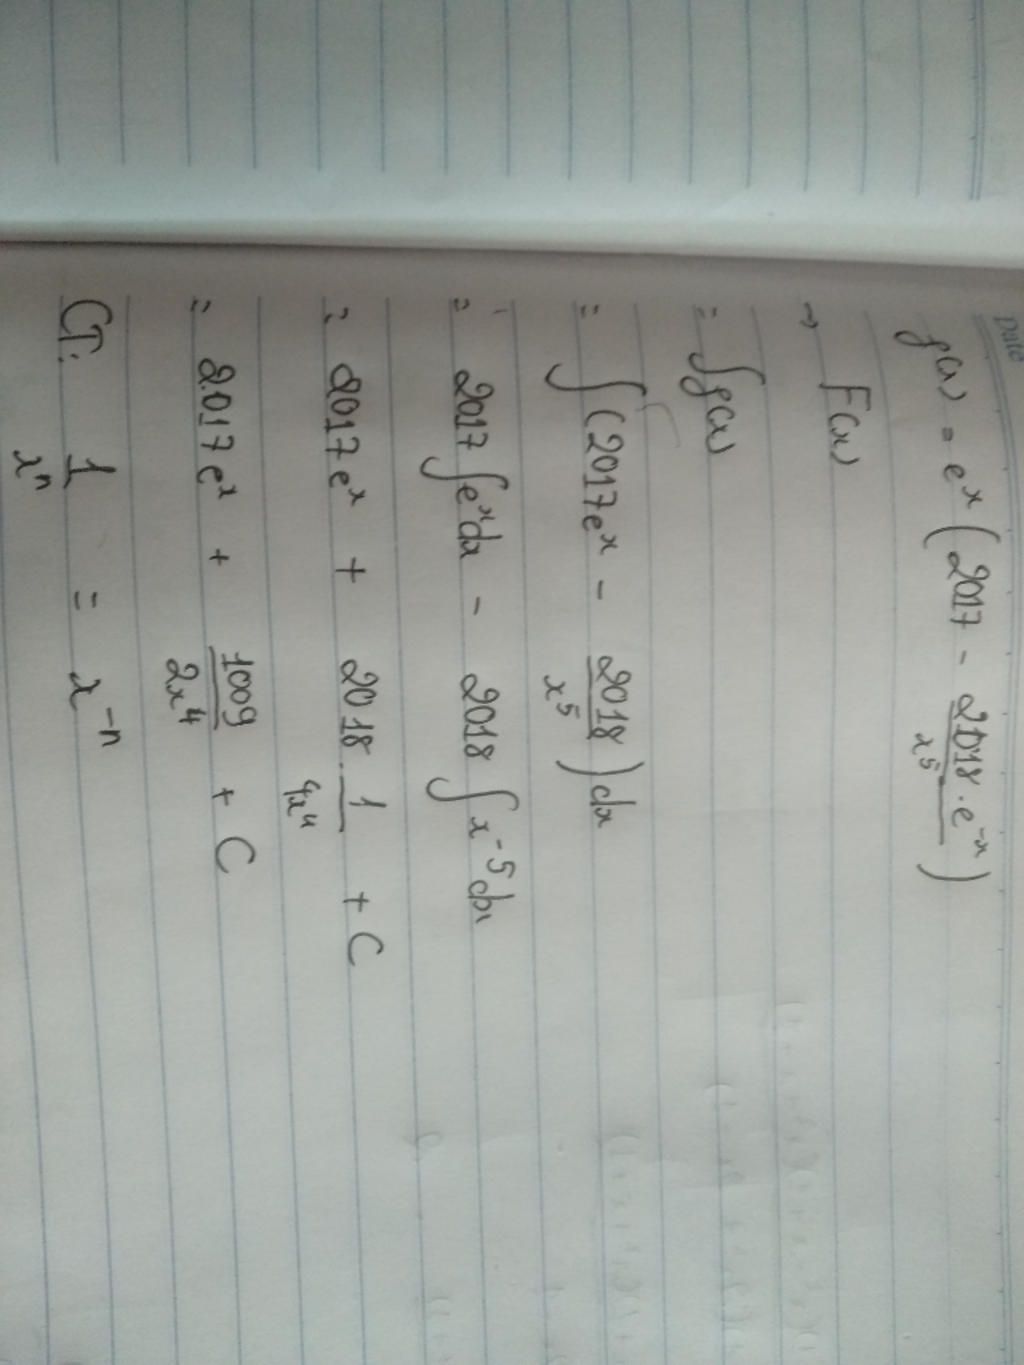 Date
f(x) = e^x (2017 - 2018.e^-x / x^5)
→ F(x)
= ∫f(x)
= ∫(2017e^x - 2018/x^5)dx
= 2017∫e^x dx - 2018∫x^-5 dx
= 2017e^x + 2018.1/4x^4 + C
= 2017e^x + 1009/2x^4 + C
CT: 1/x^n = x^-n